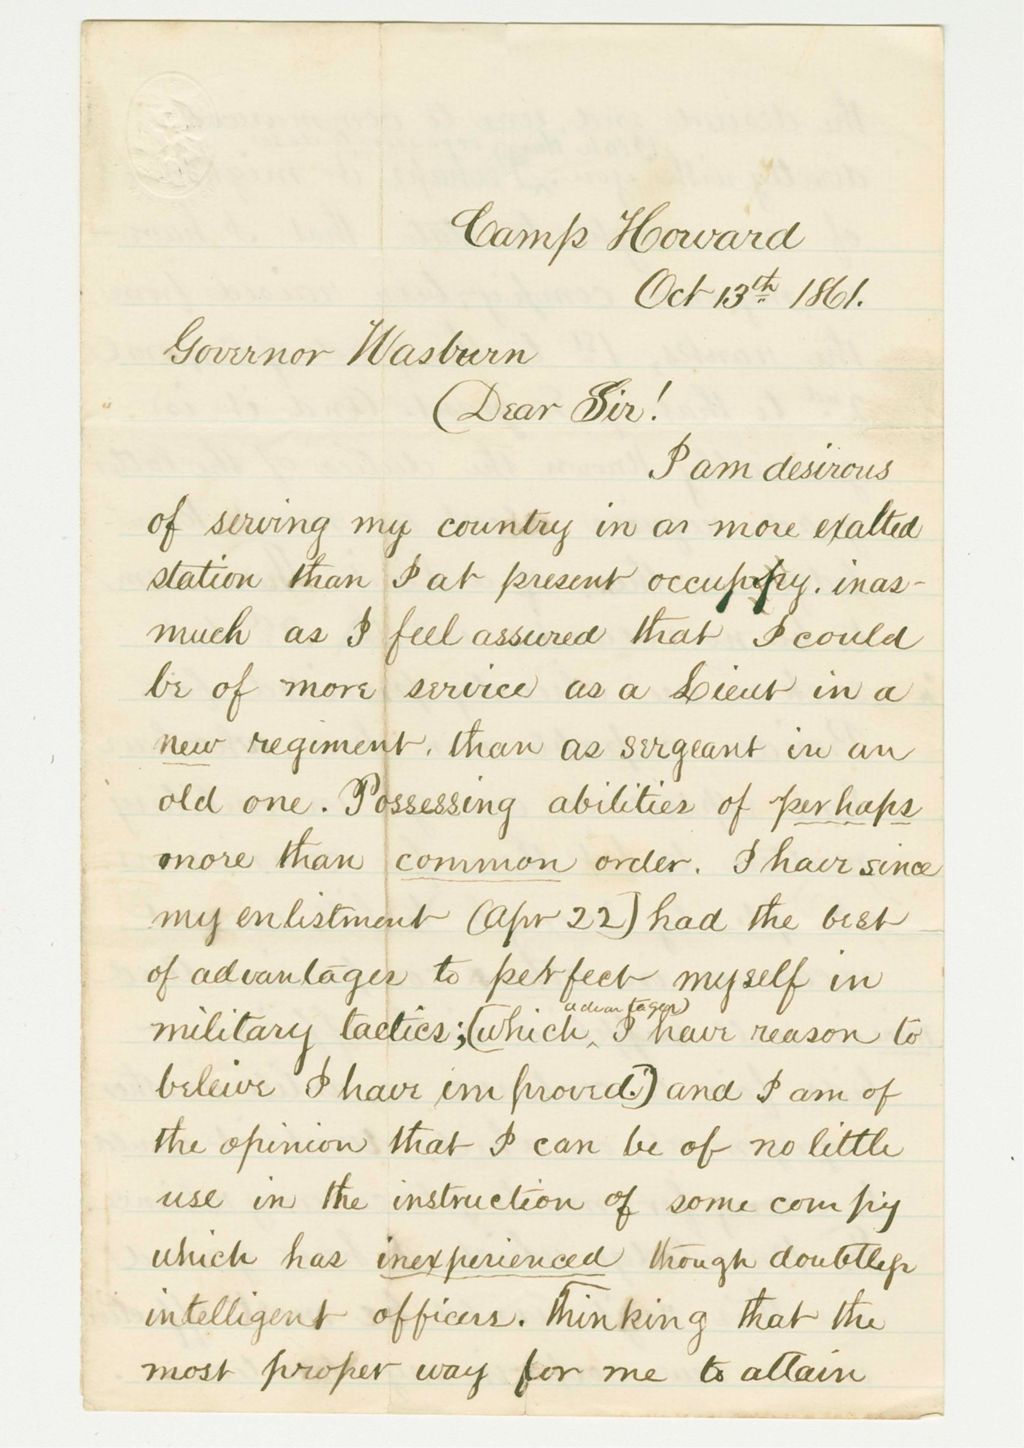 Camp Howard
Oct 13th 1861.
Governor Wasburn
Dear Sir!
I am desirous
of serving my country in a more exalted
station than I at present occuppy. inas-
much as I feel assured that I could
be of more service as a Lieut in a
new regiment, than as sergeant in an
old one. Possessing abilities of perhaps
more than common order. I have since
my enlistment (Apr 22) had the best
of advantages to perfect myself in
advantages
military tactics; (which I have reason to
beleive I have improved.) and I am of
the opinion that I can be of no little
use in the instruction of some compy
which has inexperienced though doubtless
intelligent officers. Thinking that the
most proper way for me to attain